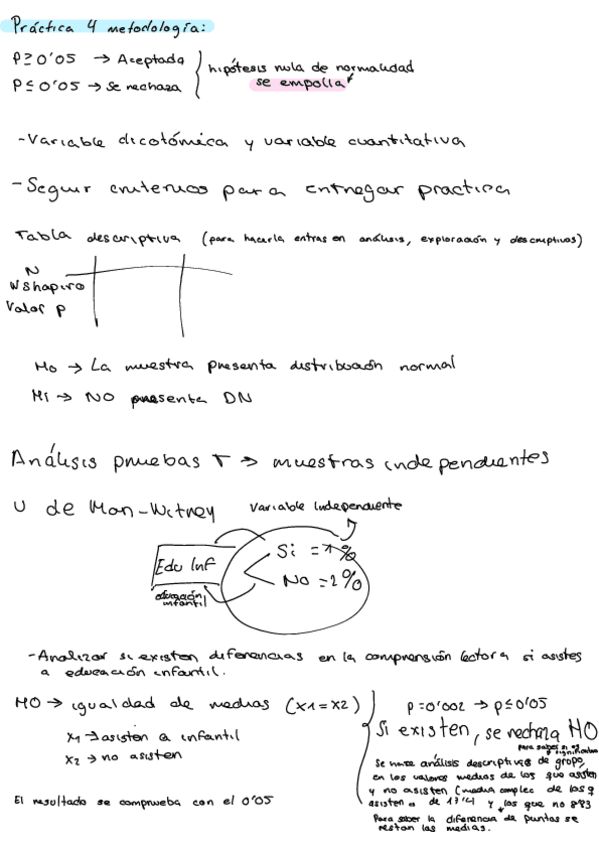 Práctica 4 metodología:
P≥0'05 → Aceptada
P≤0'05 → Se rechaza
hipótesis nula de normalidad
se empolla
-Variable dicotómica y variable cuantitativa
-Seguir criterios para entregar practica
Tabla descriptiva (para hacerla entras en análisis, exploración y descriptivos)
N
W Shapiro
Valor p
Ho → La muestra presenta distribución normal
Hi → NO presenta DN
Análisis pruebas T → muestras independientes
U de Man-Witney
Variable Independiente
Edu Inf
educación infantil
Si = 1%
No = 2%
-Analizar si existen diferencias en la comprensión lectora si asistes
a educación infantil.
HO → igualdad de medias (x1=x2)
x1 → asisten a infantil
x2 → no asisten
El resultado se comprueba con el 0'05
p=0'002 → p≤0'05
Si existen, se rechaza HO
para saber si es significativa
Se mira análisis descriptivos de grupo,
en los valores medios de los que asisten
y no asisten (media de los q
asisten a de 17'4 y los que no 8'93
Para saber la diferencia de puntos se
restan las medias.